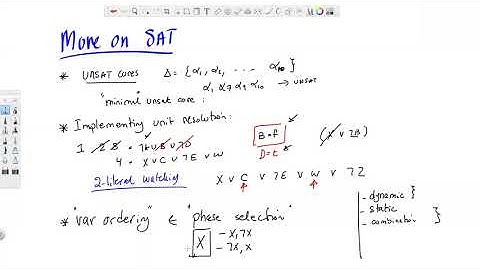 More on SAT
* UNSAT cores Δ = {α₁, α₂, ... α₁₀}
α₁ α₇ α₂ α₁₀ → UNSAT
"minimal" unsat core :
* Implementing unit resolution:
B = f
D = t
4 = X ∨ C ∨ ¬E ∨ W
2-literal watching X ∨ C ∨ ¬E ∨ W ∨ ¬Z
* "var ordering" ∈ "phase selection"
X
- X, ¬X
- ¬X, X
- dynamic }
- static
- combination }